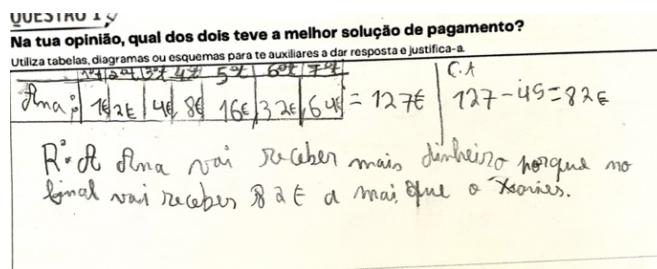 QUESTÃO 1
Na tua opinião, qual dos dois teve a melhor solução de pagamento?
Utiliza tabelas, diagramas ou esquemas para te auxiliares a dar resposta e justifica-a.
1ªt 2ªt 3ªt 4ªt 5ªt 6ªt 7ªt C.A
Ana: 1€ 2€ 4€ 8€ 16€ 32€ 64€ = 127€ 127-45=82€
R: A Ana vai receber mais dinheiro porque no
final vai receber 82€ a mais que o